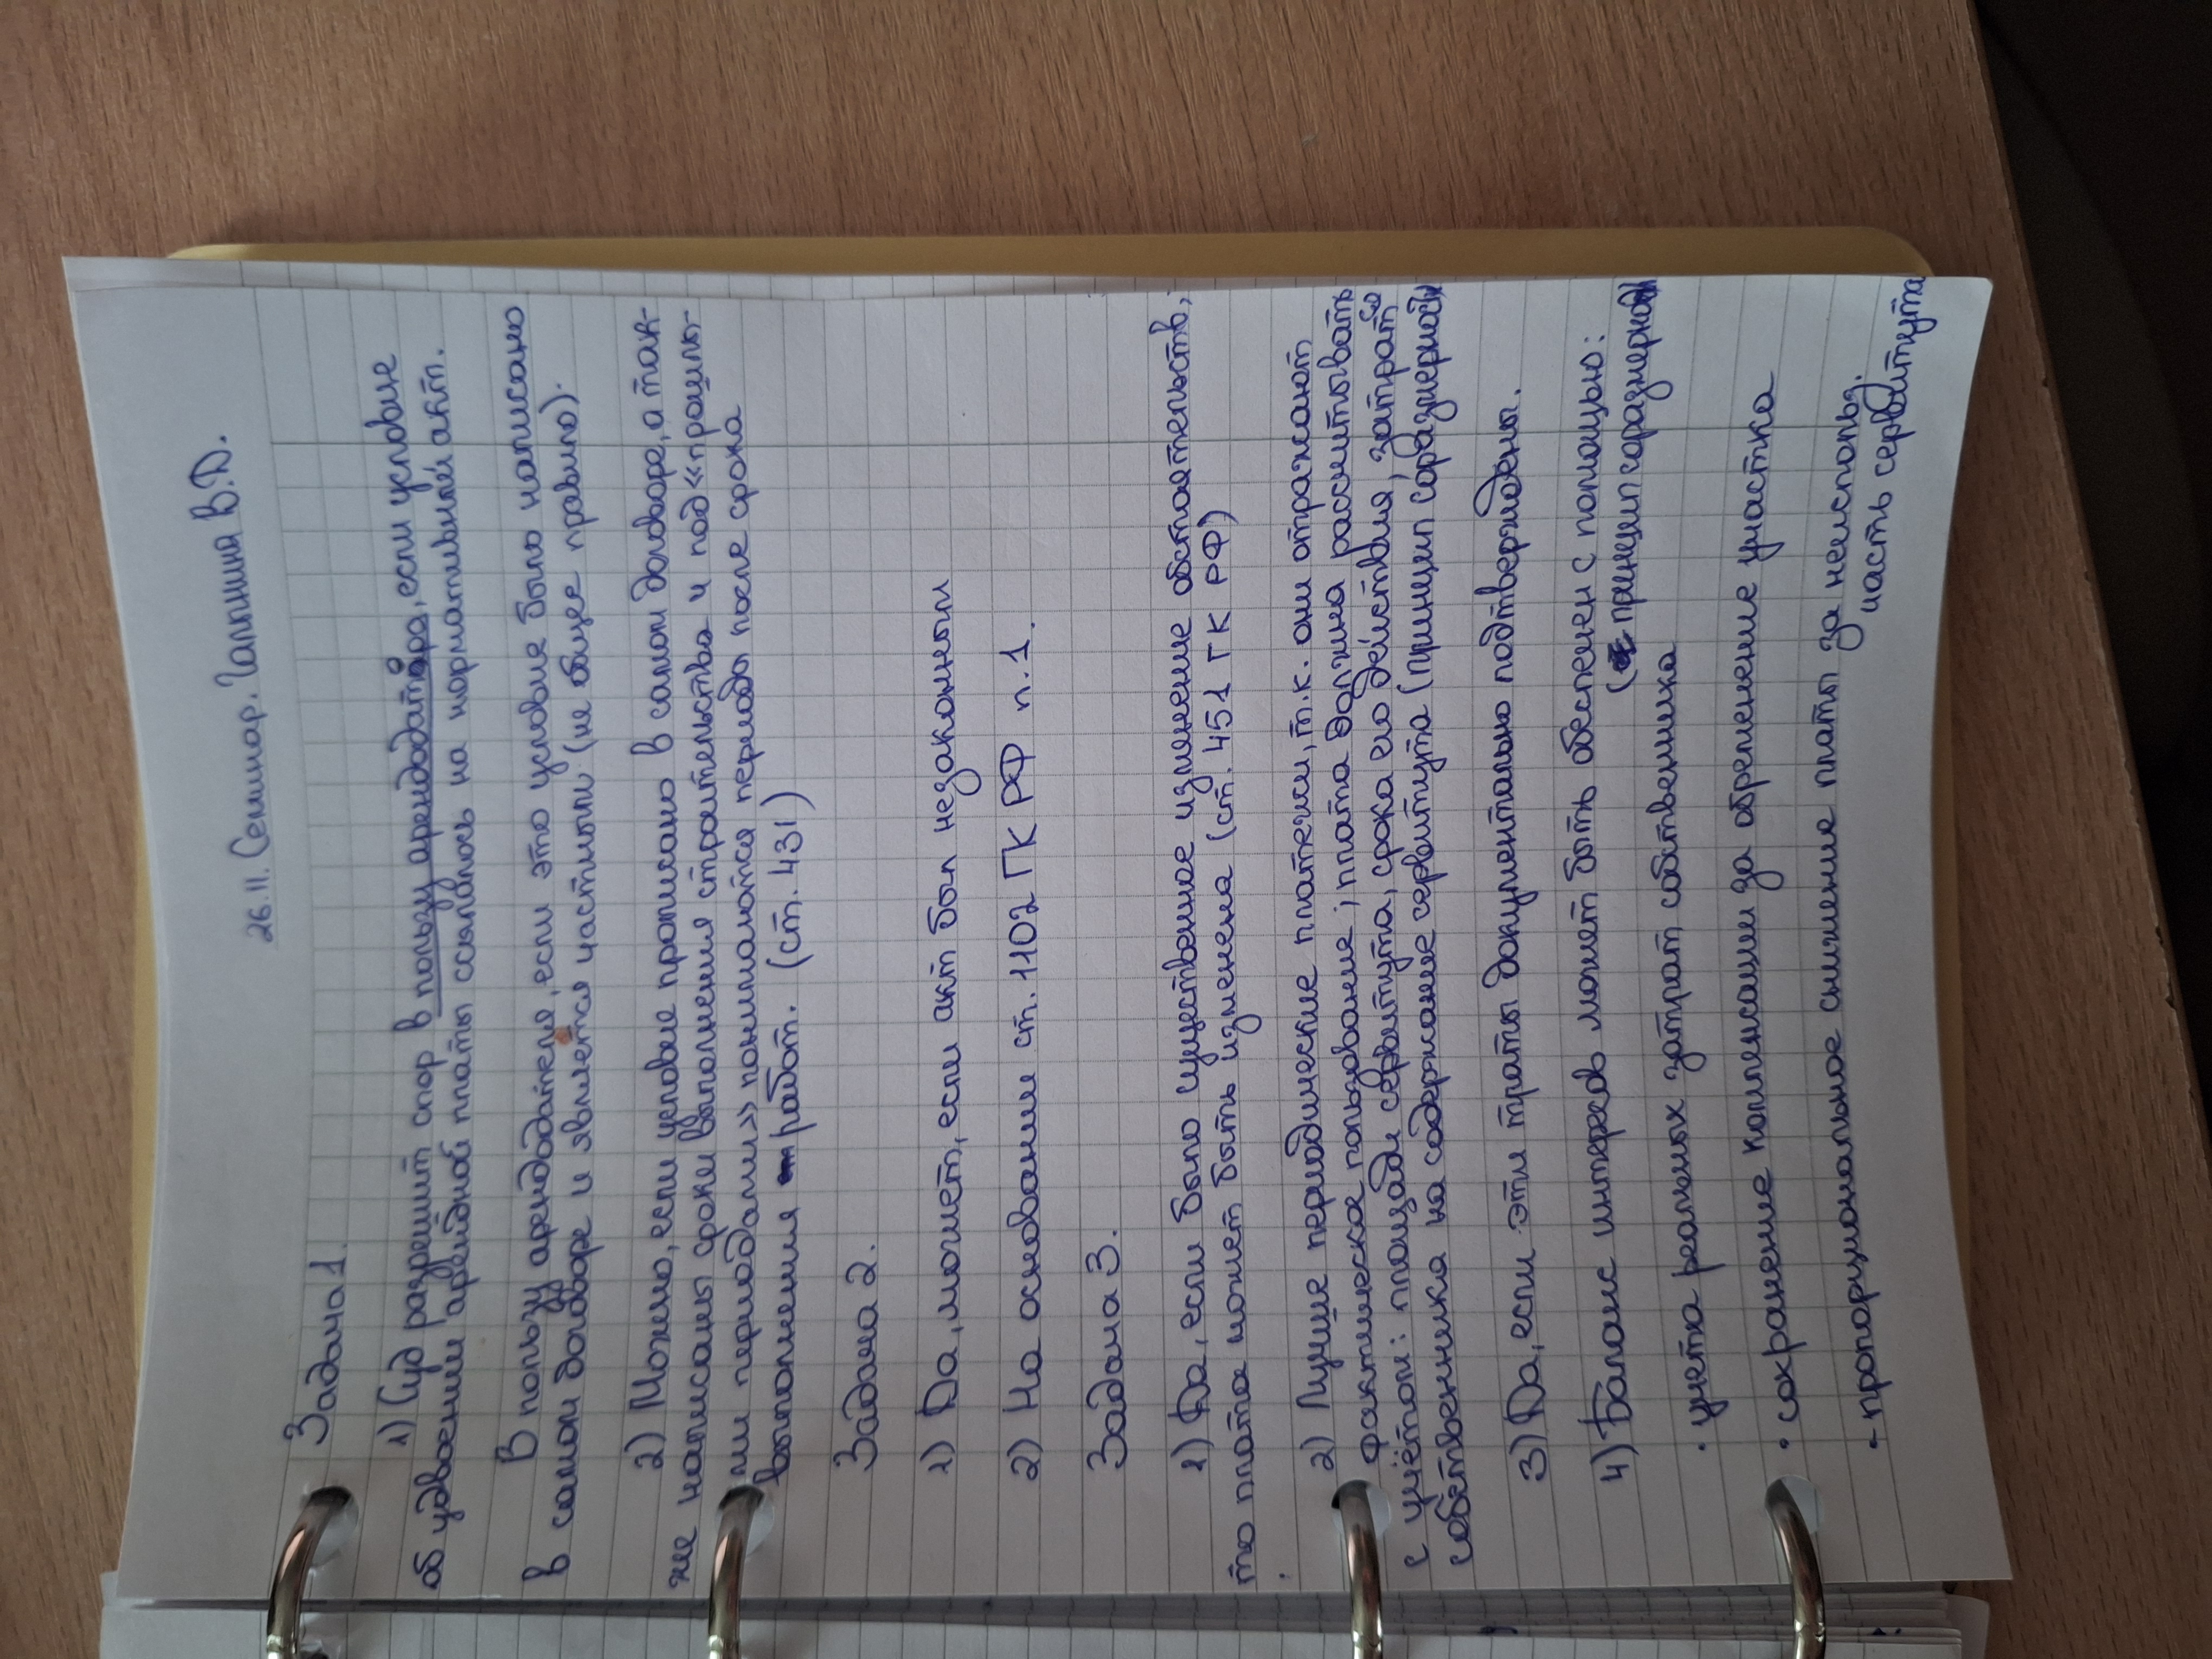 26.11. Семинар. Галынина В.D.
Задача 1.
1) Суд разрешит спор в пользу арендодатора, если условие
об удвоении арендной платы ссылалось на нормативный акт.
В пользу арендодателя, если это условие было написано
в самом договоре и является частным (не общее правило).
2) Можно, если условие прописано в самом договоре, а так-
же написаны сроки выполнения строительства и под «прошлы-
ми периодами» понимаются периоды после срока
выполнения работ. (ст. 431)
Задача 2.
1) Да, может, если акт был незаконным
2) На основании ст. 1102 ГК РФ п. 1.
Задача 3.
1) Да, если было существенное изменение обстоятельств,
то плата может быть изменена (ст. 451 ГК РФ)
2) Лучше периодические платежи, т.к. они отражают
фактическое пользование; плата должна рассчитывать
с учётом: площади сервитута, срока его действия, затрат ся
собственника на содержание сервитута (принцип соразмерности)
3) Да, если эти траты документально подтверждены.
4) Баланс интересов может быть обеспечен с помощью:
(принцип соразмерной)
· учета реальных затрат собственника
· сохранение компенсации за обременение участка
- пропорциональное снижение платы за неиспольз.
часть сервитута